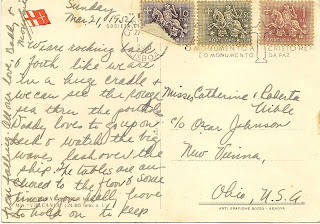 Sunday
Mar 21, 1954
We are rocking back
& forth like we are
in a huge cradle &
we can see the
sea thru the porthole
Daddy loves to go up on
deck & watch the big
waves lash over the
ship. The tables are an
chored to the floor & some
times you all have
to hold on to keep
from falling All our love, Daddy &
O MONUMENTO A CRISTO REI
O MONUMENTO DA PAZ
Misses Catherine & Roberta
c/o Oscar Johnson
New Vienna,
Ohio, U.S.A.